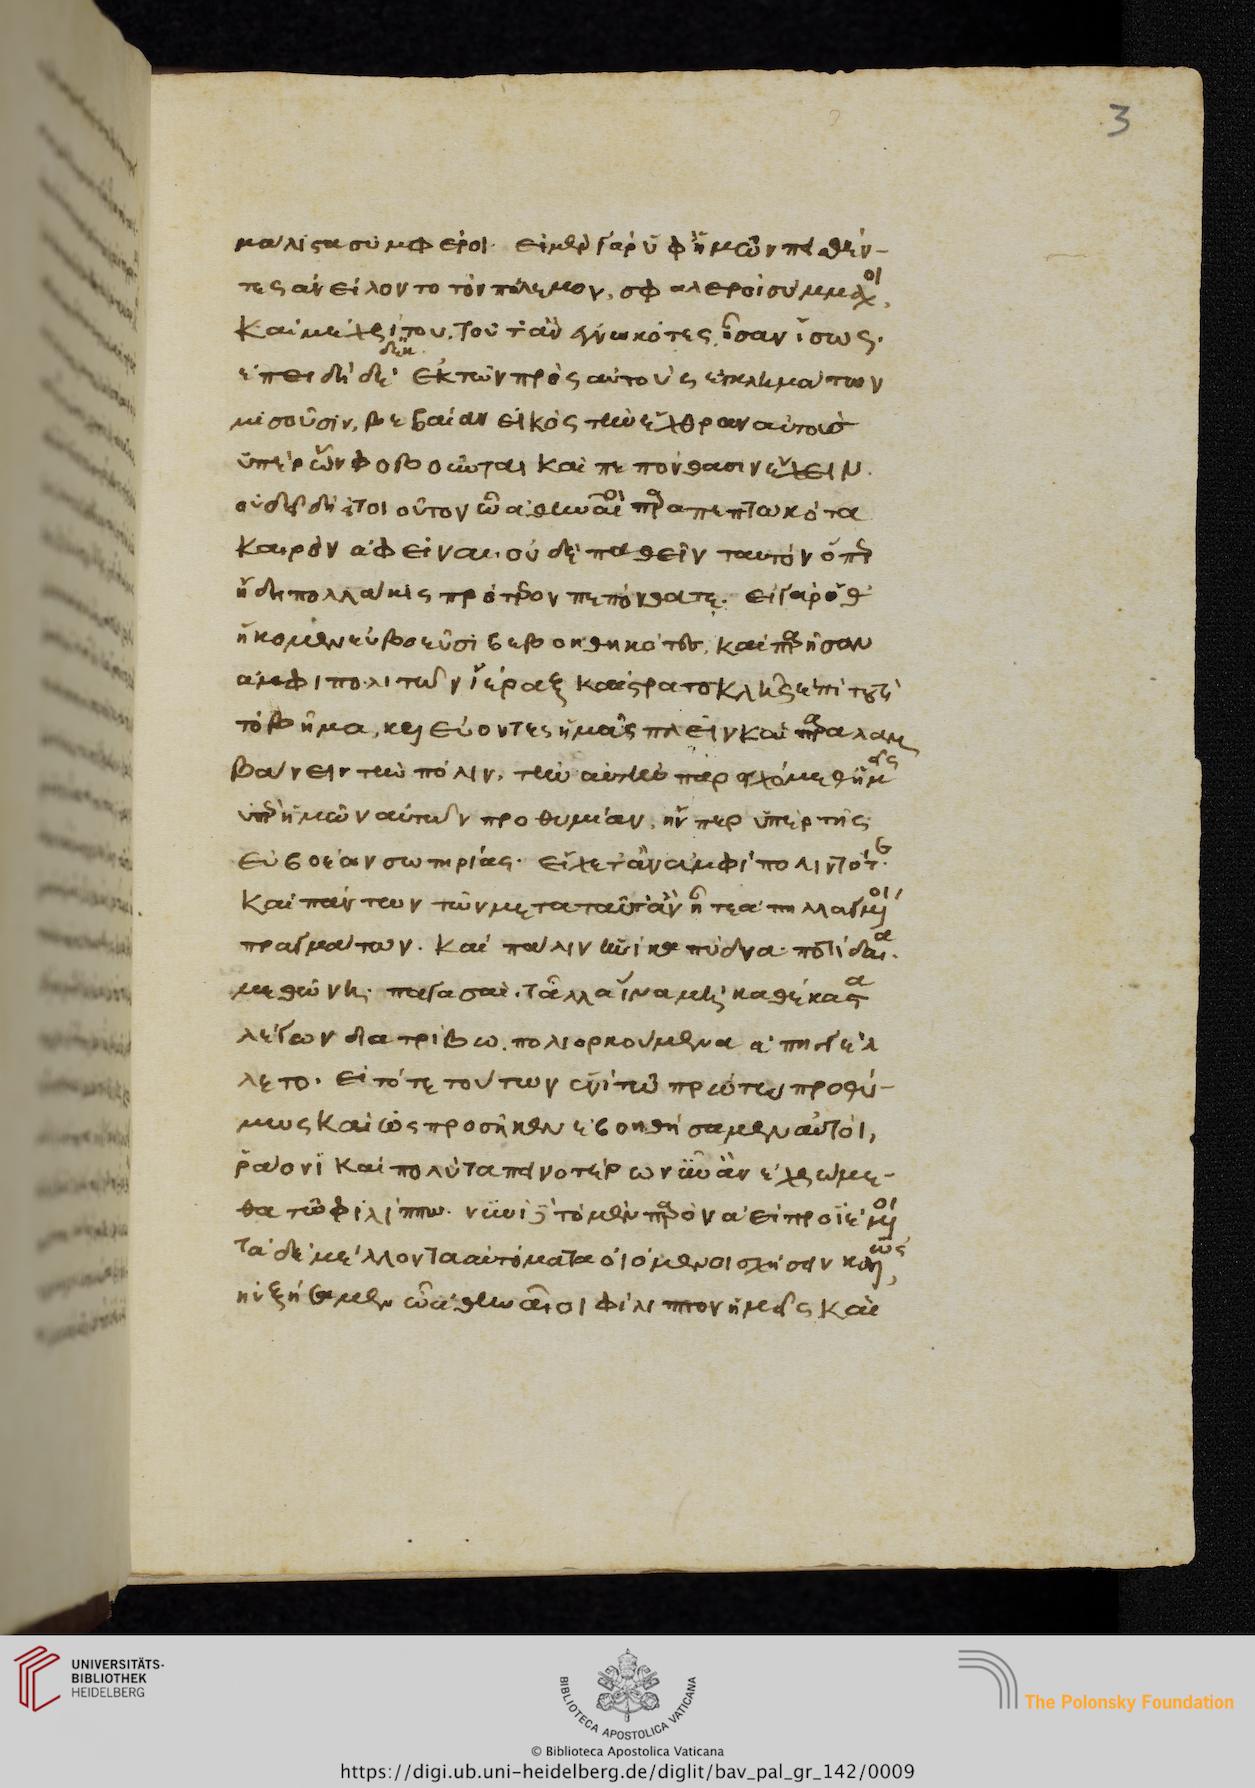 3
μάλιστα συμφέροι· εἰ μὲν γὰρ ὑφ' ἡμῶν πεισθέν-
τες ἀνείλοντο τὸν πόλεμον, σφαλεροὶ σύμμαχοι,
καὶ μέχρι του, ταῦτ' ἂν ἐγνωκότες ἦσαν ἴσως·
ἐπειδὴ δὲ ἐκ τῶν πρὸς αὐτοὺς ἐγκλημάτων
μισοῦσιν, βεβαίαν εἰκὸς τὴν ἔχθραν αὐτοὺς
ὑπὲρ ὧν φοβοῦνται καὶ πεπόνθασιν ἔχειν.
οὐ δεῖ δὴ τοιοῦτον ὦ ἄνδρες ἀθηναῖοι παραπεπτωκότα
καιρὸν ἀφεῖναι· οὐδὲ παθεῖν ταυτὸν ὅπερ
ἤδη πολλάκις πρότερον πεπόνθατε. εἰ γὰρ ὅθ'
ἥκομεν εὐβοεῦσι βεβοηθηκότες, καὶ παρῆσαν
ἀμφιπολιτῶν ἱέραξ καὶ στρατοκλῆς ἐπὶ τουτὶ
τὸ βῆμα, κελεύοντες ἡμᾶς πλεῖν καὶ παραλαμ
βάνειν τὴν πόλιν, τὴν αὐτὴν παρειχόμεθ' ἡμεῖς
ὑπὲρ ἡμῶν αὐτῶν προθυμίαν, ἥνπερ ὑπὲρ τῆς
εὐβοέων σωτηρίας· εἴχετ' ἂν ἀμφίπολιν τότε·
καὶ πάντων τῶν μετὰ ταῦτ' ἂν ἦτε ἀπηλλαγμένοι
πραγμάτων. καὶ πάλιν ἡνίκα πύδνα· ποτίδαια·
μεθώνη· παγασαὶ· τἆλλα ἵνα μὴ καθ' ἕκαστα
λέγων διατρίβω, πολιορκούμενα ἀπηγγέλ
λετο· εἰ τότε τούτων ἑνὶ τῷ πρώτῳ προθύ-
μως καὶ ὡς προσῆκεν ἐβοηθήσαμεν αὐτοὶ,
ῥάονι καὶ πολὺ ταπεινοτέρῳ νῦν ἂν ἐχρώμε-
θα τῷ φιλίππῳ. νυνὶ δὲ τὸ μὲν παρὸν ἀεὶ προϊέμενοι
τὰ δὲ μέλλοντα αὐτόματα οἰόμενοι σχήσειν καλῶς,
ηὐξήσαμεν ὦ ἄνδρες ἀθηναῖοι φίλιππον ἡμεῖς καὶ
UNIVERSITÄTS-
BIBLIOTHEK
HEIDELBERG
BIBLIOTECA APOSTOLICA VATICANA
The Polonsky Foundation
© Biblioteca Apostolica Vaticana
https://digi.ub.uni-heidelberg.de/diglit/bav_pal_gr_142/0009